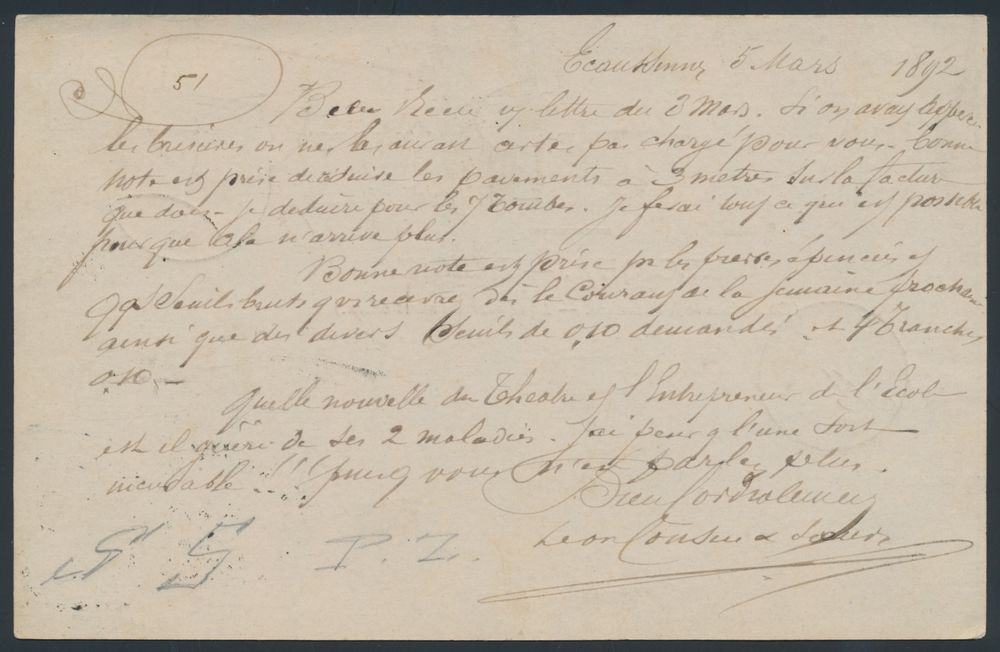 51
Ecaussinnes 5 Mars 1892
Bien Recu v/ lettre du 3 Mars. Si on avait
les on ne les aurait certes pas chargé pour vous. Bonne
note est prise de déduire les pavements à 3 metres sur la facture
que dois-je déduire pour les 7 Tombes. Je ferai tout ce qui est possible
pour que cela n'arrive plus.
Bonne note est prise pr les et
qq Seuils bruts q vs recevrez dès le Courant de la Semaine prochaine
ainsi que des divers Seuils de 0,10 demandés et 4 Tranches
0,10 —
Quelle nouvelle du Theatre et l'Entrepreneur de l'Ecole
est il guéri de ses 2 maladies. J'ai peur q l'une soit
incurable !!! puisq vous n'en parlez plus.
Bien Cordialement
Leon
5 P. Z.